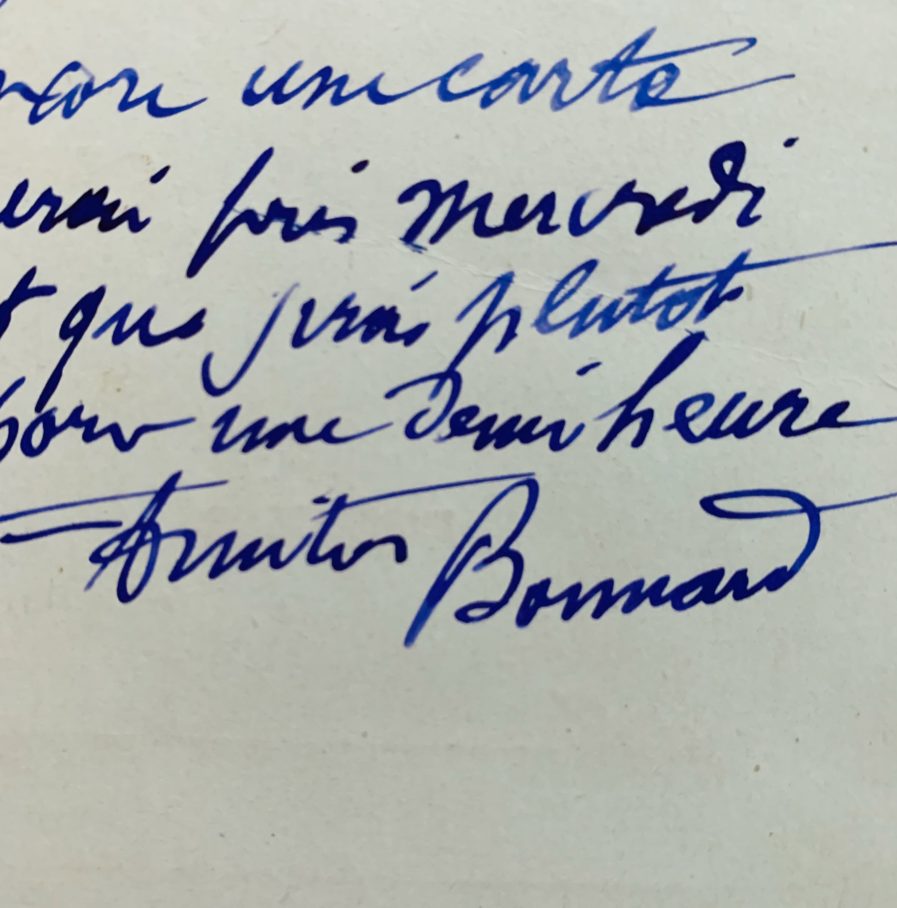 encore une carte
serai pris mercredi
et que j'irai plutot
pour une demi heure
Amitiés Bonnard